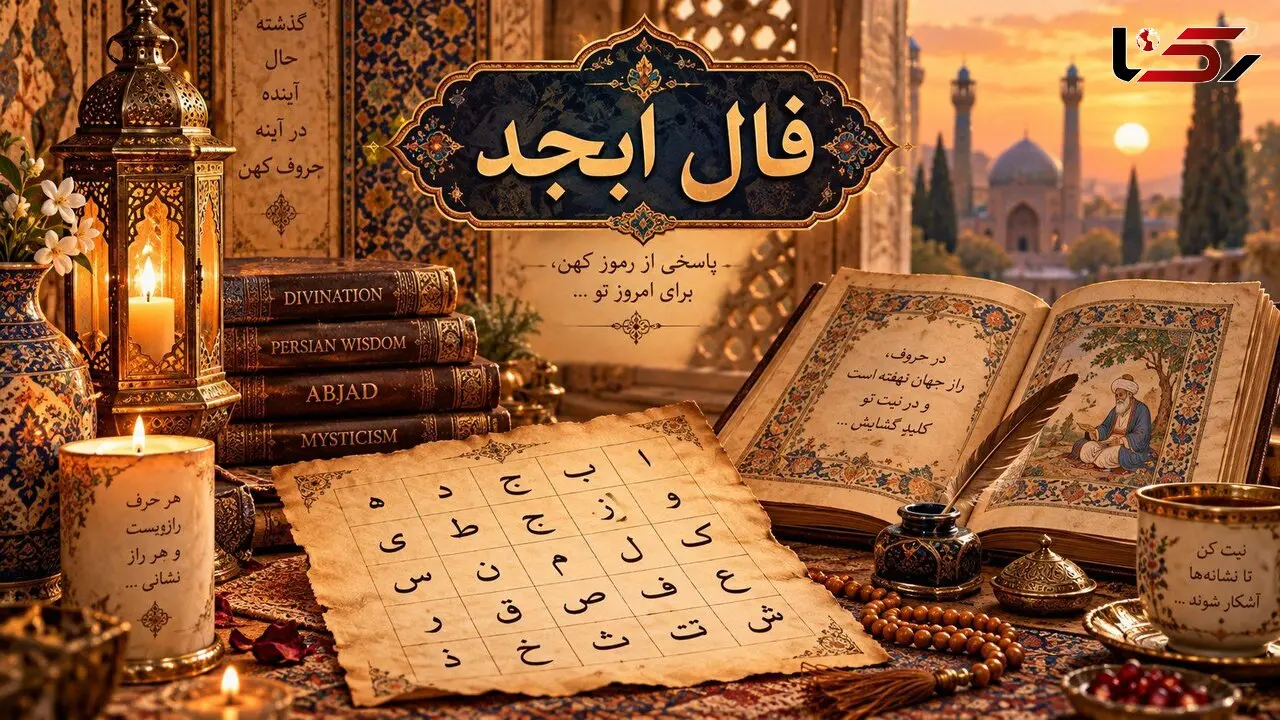 رکنا
فال ابجد
پاسخی از رموز کهن،
برای امروز تو ...
گذشته
حال
آینده
در آینه
جروف کهن
DIVINATION
PERSIAN WISDOM
ABJAD
MYSTICISM
در حروف،
راز جهان نهفته است
و در نیت تو
کلیدِ گشایش ...
ا ب ج د ه
و ز ج ط ی
ک ل م ن س
ع ف ص ق ر
ش تت ث خ ذ
هر حرف
رازویست
و هر راز
نشانی ...
نیت کن
تا نشانه‌ها
آشکار شوند ...